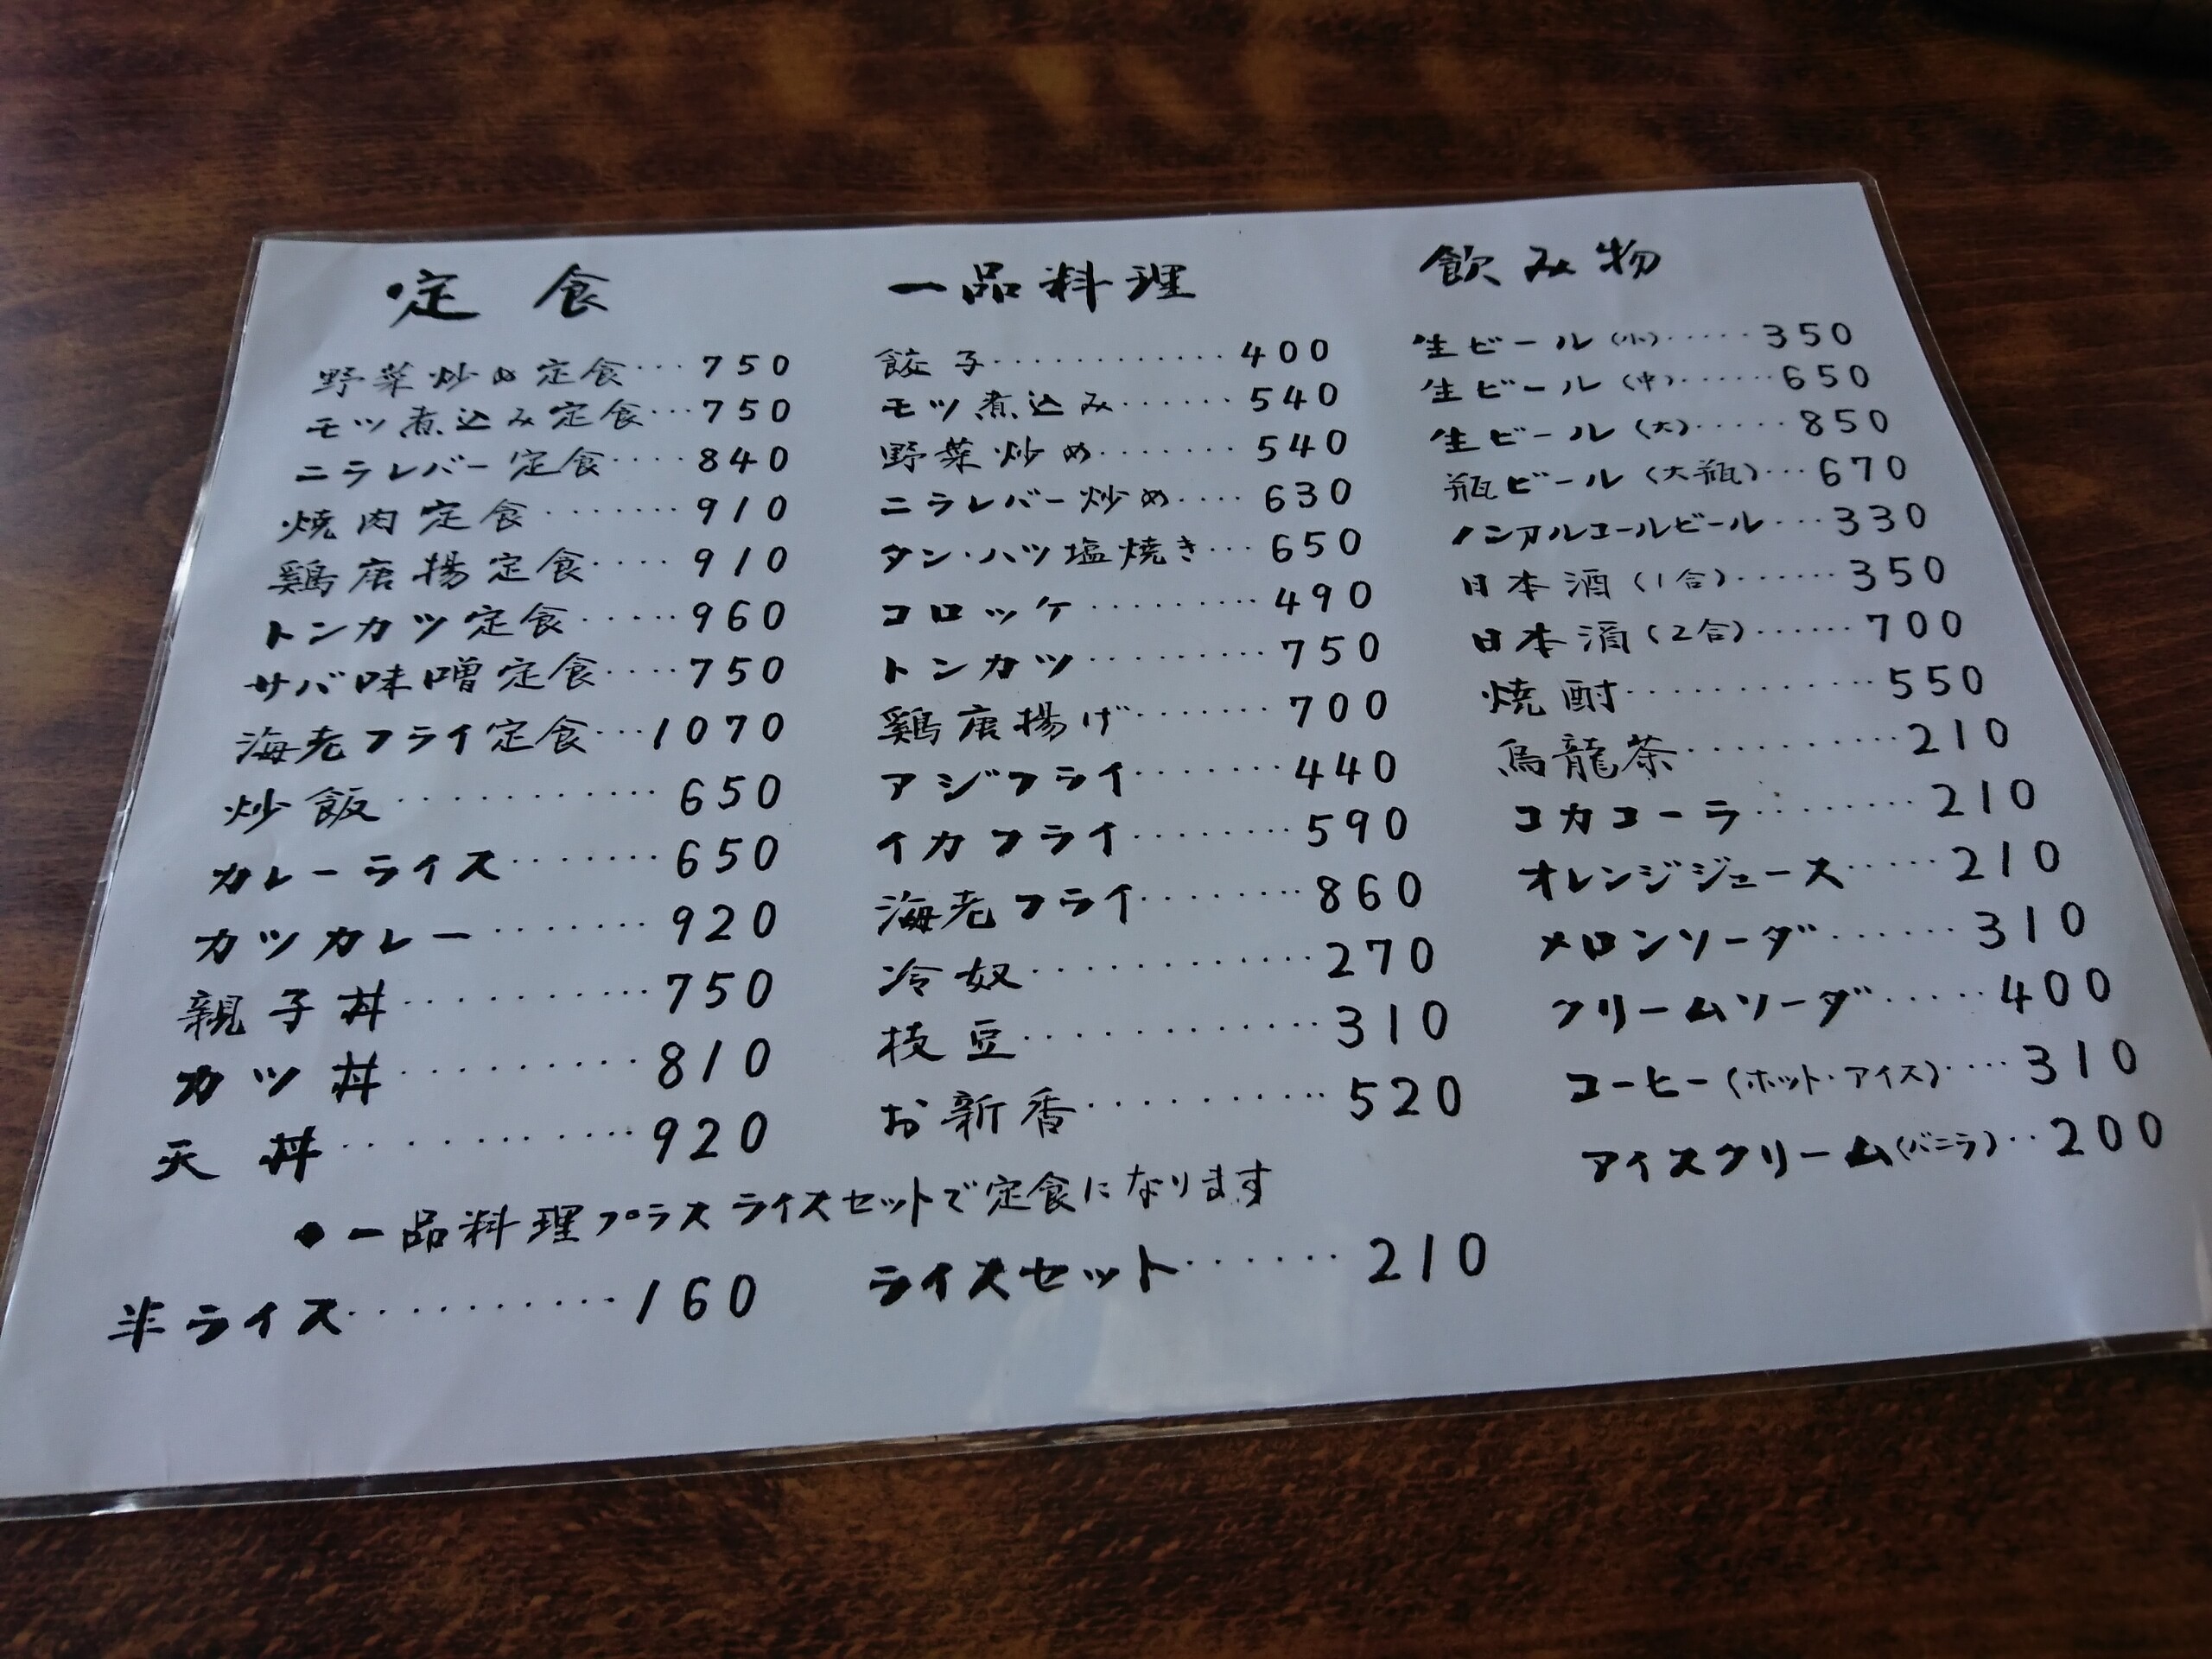 定食
野菜炒め定食‥‥750
モツ煮込み定食‥‥750
ニラレバー定食‥‥840
焼肉定食‥‥‥‥910
鶏唐揚定食‥‥‥910
トンカツ定食‥‥‥960
サバ味噌定食‥‥750
海老フライ定食‥‥1070
炒飯‥‥‥‥‥‥650
カレーライス‥‥‥‥650
カツカレー‥‥‥‥920
親子丼‥‥‥‥‥750
カツ丼‥‥‥‥‥810
天丼‥‥‥‥‥‥920
一品料理
餃子‥‥‥‥‥‥400
モツ煮込み‥‥‥540
野菜炒め‥‥‥‥540
ニラレバー炒め‥‥630
タン・ハツ塩焼き‥‥650
コロッケ‥‥‥‥‥490
トンカツ‥‥‥‥‥750
鶏唐揚げ‥‥‥‥700
アジフライ‥‥‥‥440
イカフライ‥‥‥‥590
海老フライ‥‥‥‥860
冷奴‥‥‥‥‥‥270
枝豆‥‥‥‥‥‥310
お新香‥‥‥‥‥520
飲み物
生ビール(小)‥‥‥350
生ビール(中)‥‥‥650
生ビール(大)‥‥‥850
瓶ビール(大瓶)‥‥670
ノンアルコールビール‥‥330
日本酒(1合)‥‥‥350
日本酒(2合)‥‥‥700
焼酎‥‥‥‥‥‥550
烏龍茶‥‥‥‥‥210
コカコーラ‥‥‥‥210
オレンジジュース‥‥‥210
メロンソーダ‥‥‥310
クリームソーダ‥‥‥400
コーヒー(ホット・アイス)‥‥310
アイスクリーム(バニラ)‥200
●一品料理プラスライスセットで定食になります
半ライス‥‥‥‥‥160
ライスセット‥‥‥‥210